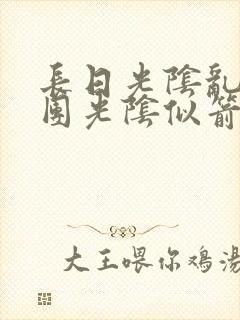 長日光陰亂
團光陰似箭
大王喂你鸡湯